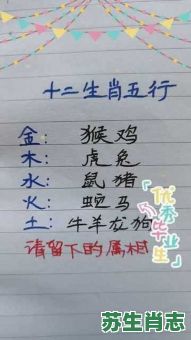 十二生肖五行
金: 猴鸡
木: 虎兔
水: 鼠猪
火: 蛇马
土: 牛羊龙狗
请留下的属相
优秀毕业生
苏生肖志